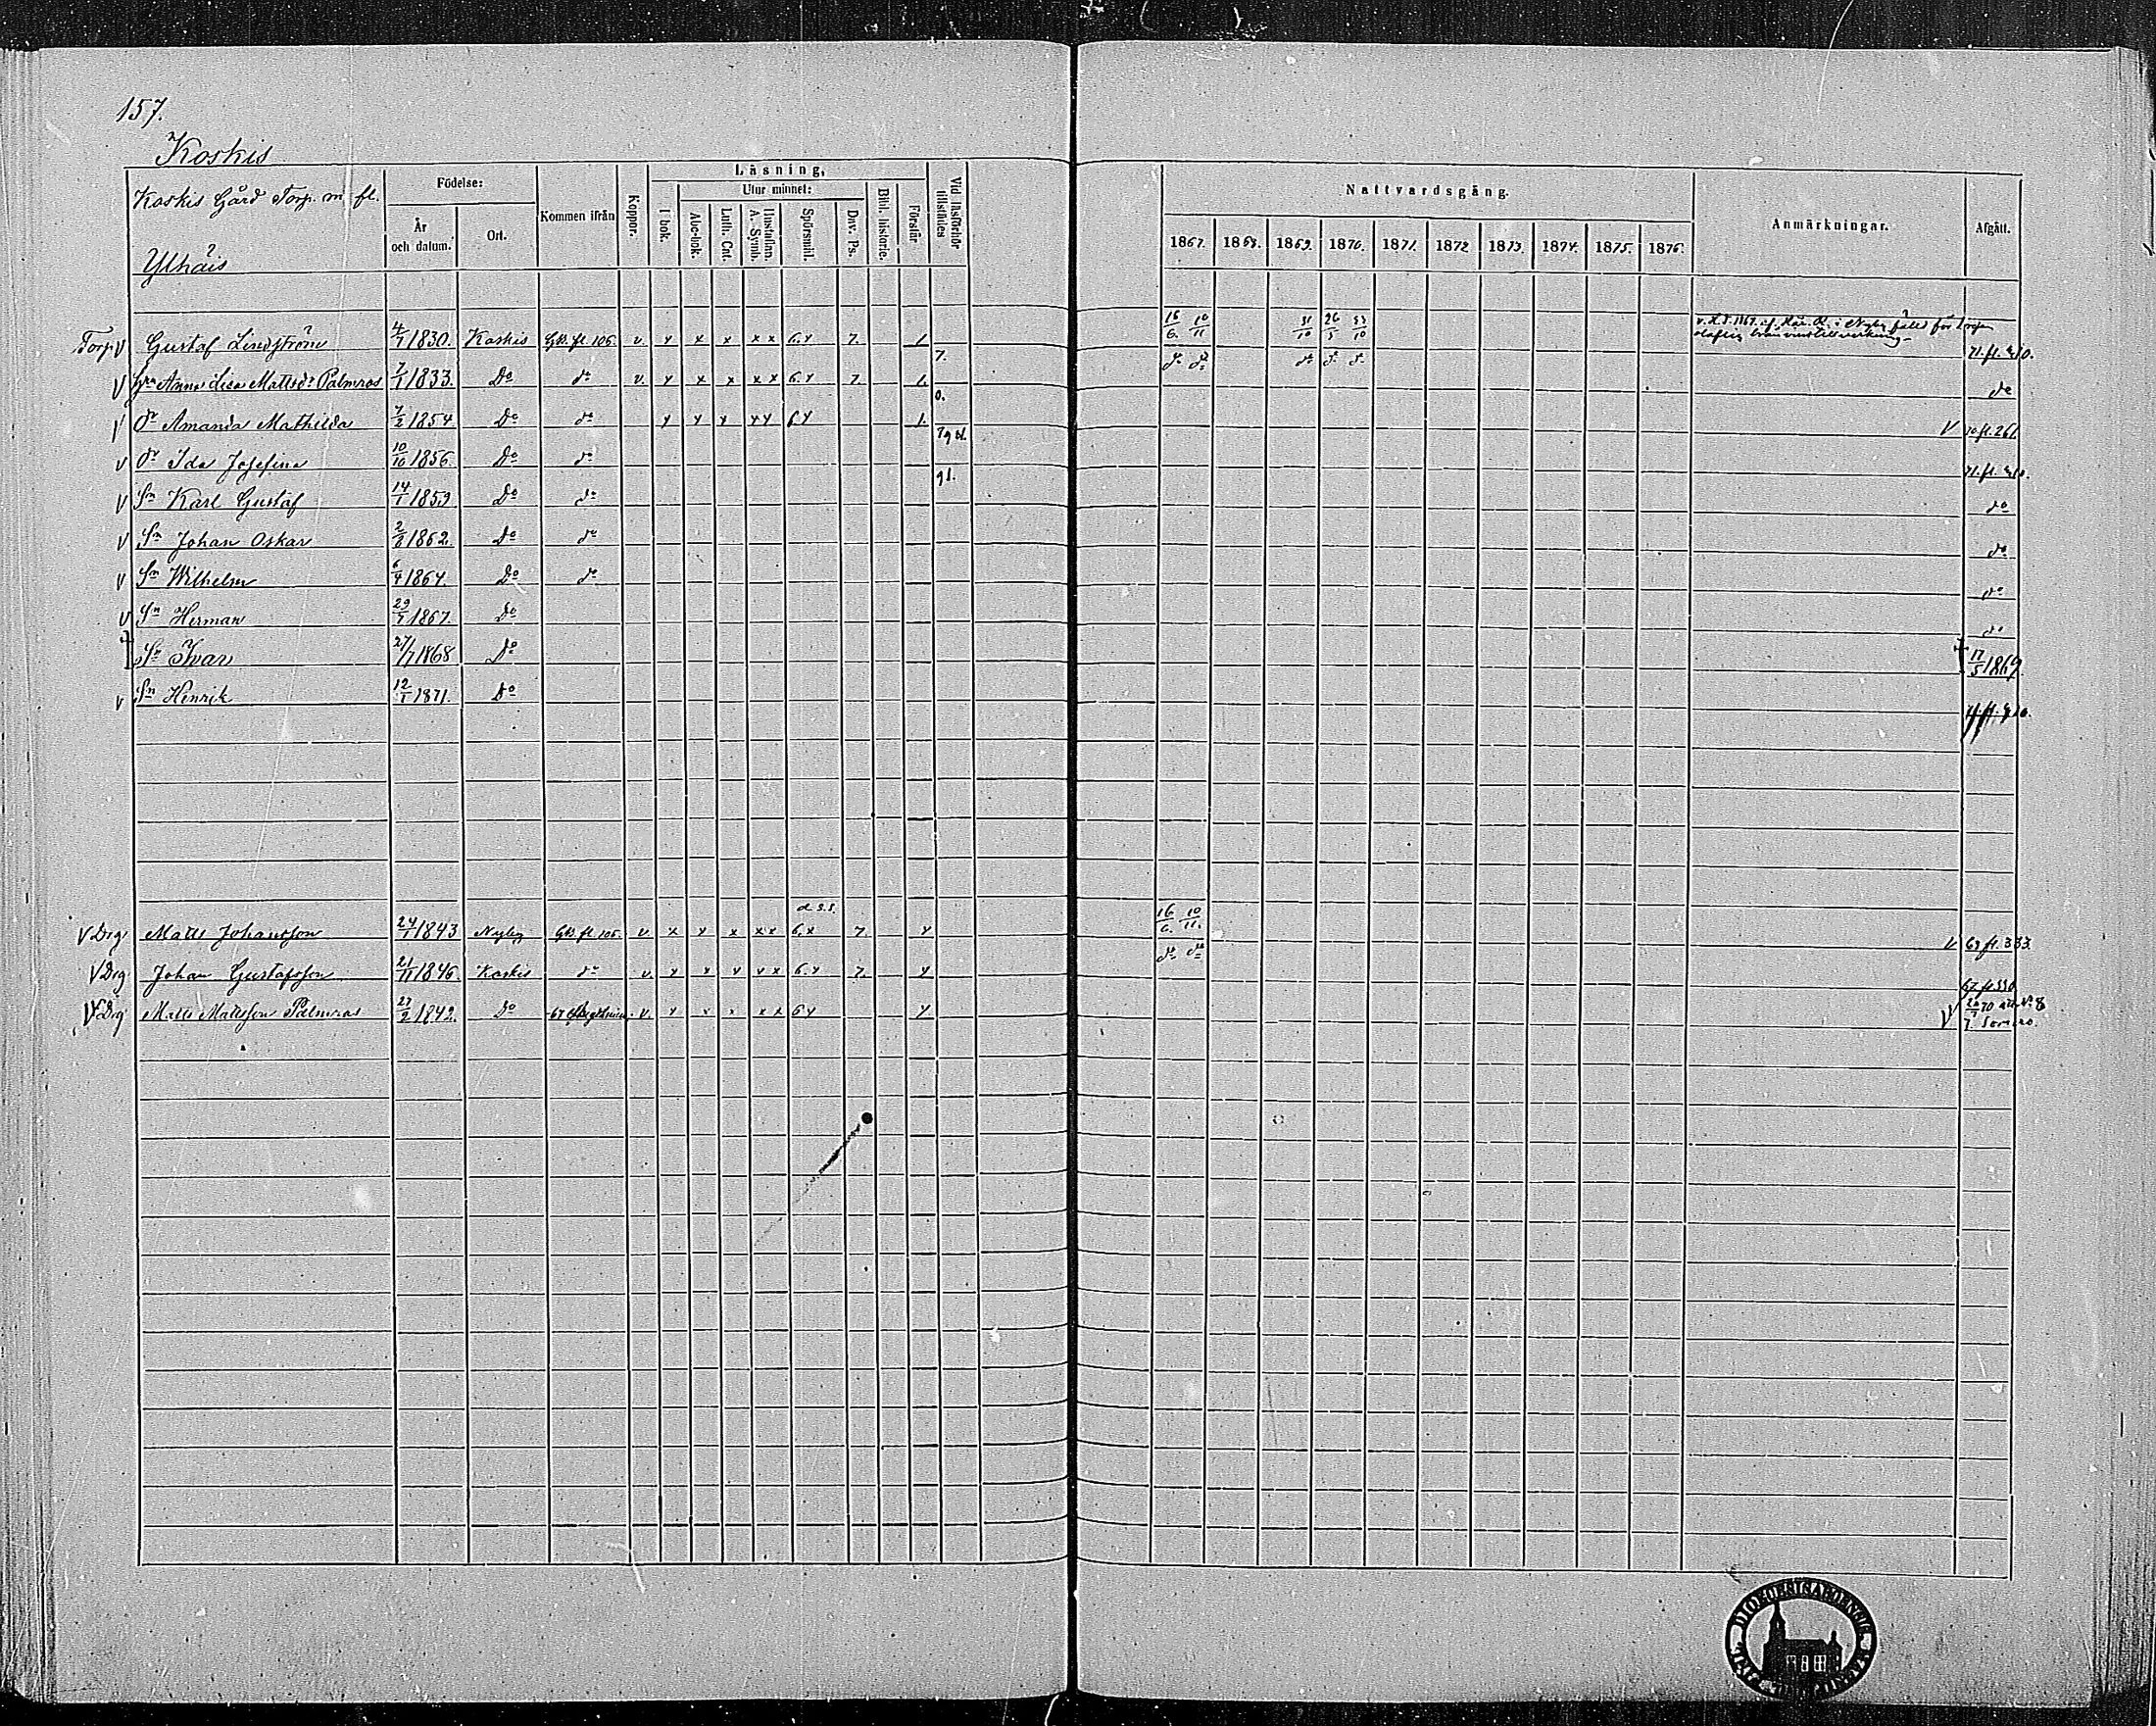 157.
Koskis
Koskis Gård Torp. m. fl.
Ylhäis
Födelse:
År och datum.
Ort.
Kommen ifrån
Koppor.
Läsning,
Utur minnet:
I bok.
Abc-bok.
Luth. Cat.
Hustaflan. A. Symb.
Spörsmål.
Dav. Ps.
Bibl. historie.
Förstår
Vid läsförhör tillstädes
Nattvardsgång.
1867. 1868. 1869. 1870. 1871. 1872 1873. 1874. 1875. 1876.
Anmärkningar.
Afgått.
Torp v Gustaf Lindström 4/7 1830. Koskis Gk. fl. 105. v. x x x x x 6. x 7. 1. 16/6. 10/11 31/10 26/5 10 71. fl. 210.
v Hu Anna Lisa Mattsdr Palmros 7/1 1833. Do do v. x x x x x 6. x 7. 1. 7. do do do do do do
v Dr Amanda Mathilda 7/2 1854 Do do x x x x x 6 x 1. 0. v 70 fl. 261.
v Dr Ida Josefina 10/10 1856. Do do 71. fl. 210.
v Sn Karl Gustaf 14/1 1859 Do do g1. do
v Sn Johan Oskar 2/6 1862. Do do do
v Sn Wilhelm 6/4 1864. Do do do
v Sn Herman 29/1 1867. Do do
† Sn Ivar 27/7 1868 Do † 17/5 1869.
v Sn Henrik 12/1 1871. Do
d. s. s.
v Drg Matts Johansson 24/1 1843 Nyby Gk. fl. 105. v. x x x x x 6. x 7. x 16/6. 10/11. v 69 fl. 333
v Drg Johan Gustafsson 21/11 1846. Koskis do v. x x v v x 6. x 7. x do do 67 fl. 330
v Drg Matts Mattsson Palmros 27/2 1842. Do 67 v. x x x x x 6 x x v 70 att. No 8
t. Somero.
DIOECESIS ABOENSIS